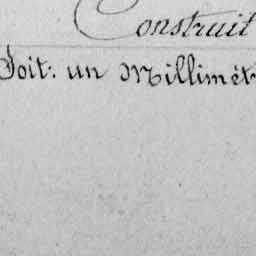 Construit
Soit: un Millimètr